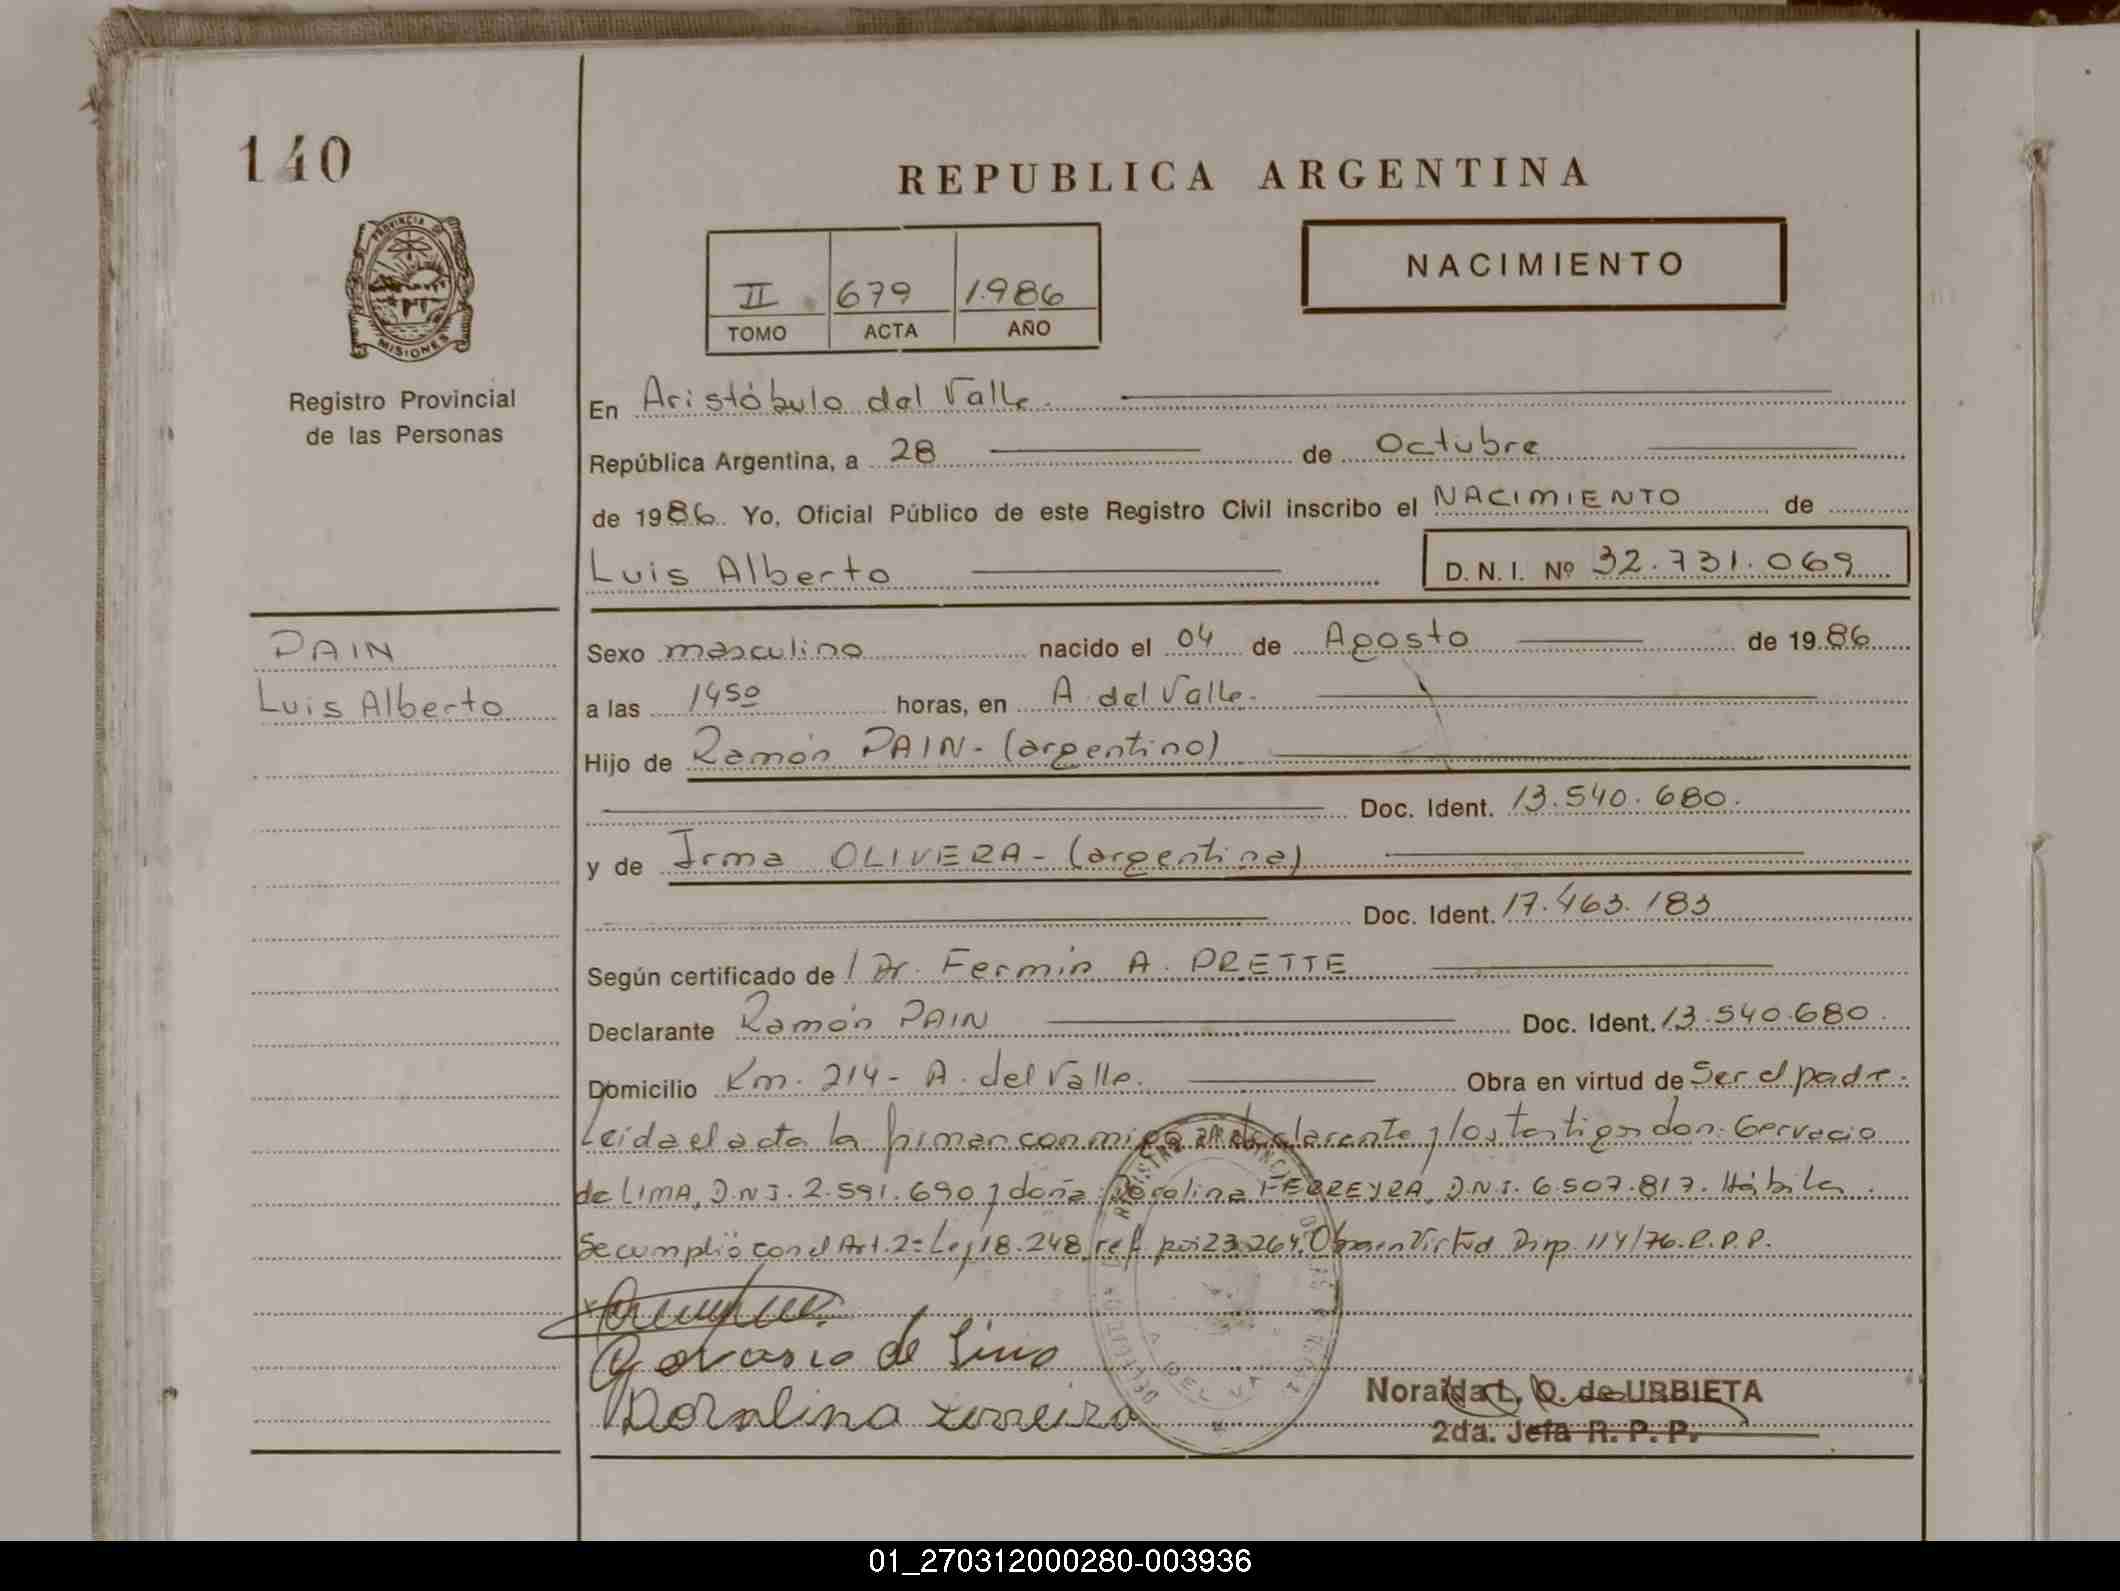 140
REPUBLICA ARGENTINA
PROVINCIA DE
MISIONES
Registro Provincial
de las Personas
II 679 1986
TOMO ACTA AÑO
NACIMIENTO
En Aristóbulo del Valle.
República Argentina, a 28 de Octubre
de 1986. Yo, Oficial Público de este Registro Civil inscribo el NACIMIENTO de
Luis Alberto D. N. I. Nº 32.731.069
PAIN
Luis Alberto
Sexo masculino nacido el 04 de Agosto de 1986
a las 1450 horas, en A. del Valle.
Hijo de Ramón PAIN - (argentino)
Doc. Ident. 13.540.680.
y de Irma OLIVERA - (argentina)
Doc. Ident. 17.463.183
Según certificado de Dr. Fermin A. PRETTE
Declarante Ramón PAIN Doc. Ident. 13.540.680.
Domicilio Km. 214 - A. del Valle. Obra en virtud de Ser el padre.
Leida el acta la firman conmigo el declarante y los testigos don: Gervacio
de LIMA, D.N.I. 2.591.690 y doña Doralina FERREYRA, D.N.I. 6.507.817. Hábiles.
Se cumplió con el Art. 2º Ley 18.248, ref. por 23.264. Obra en Virtud Disp. 114/76. R.P.P.
Gervasio de Lima
Doralina
Noraida L. O. de URBIETA
2da. Jefa R. P. P.
01_270312000280-003936